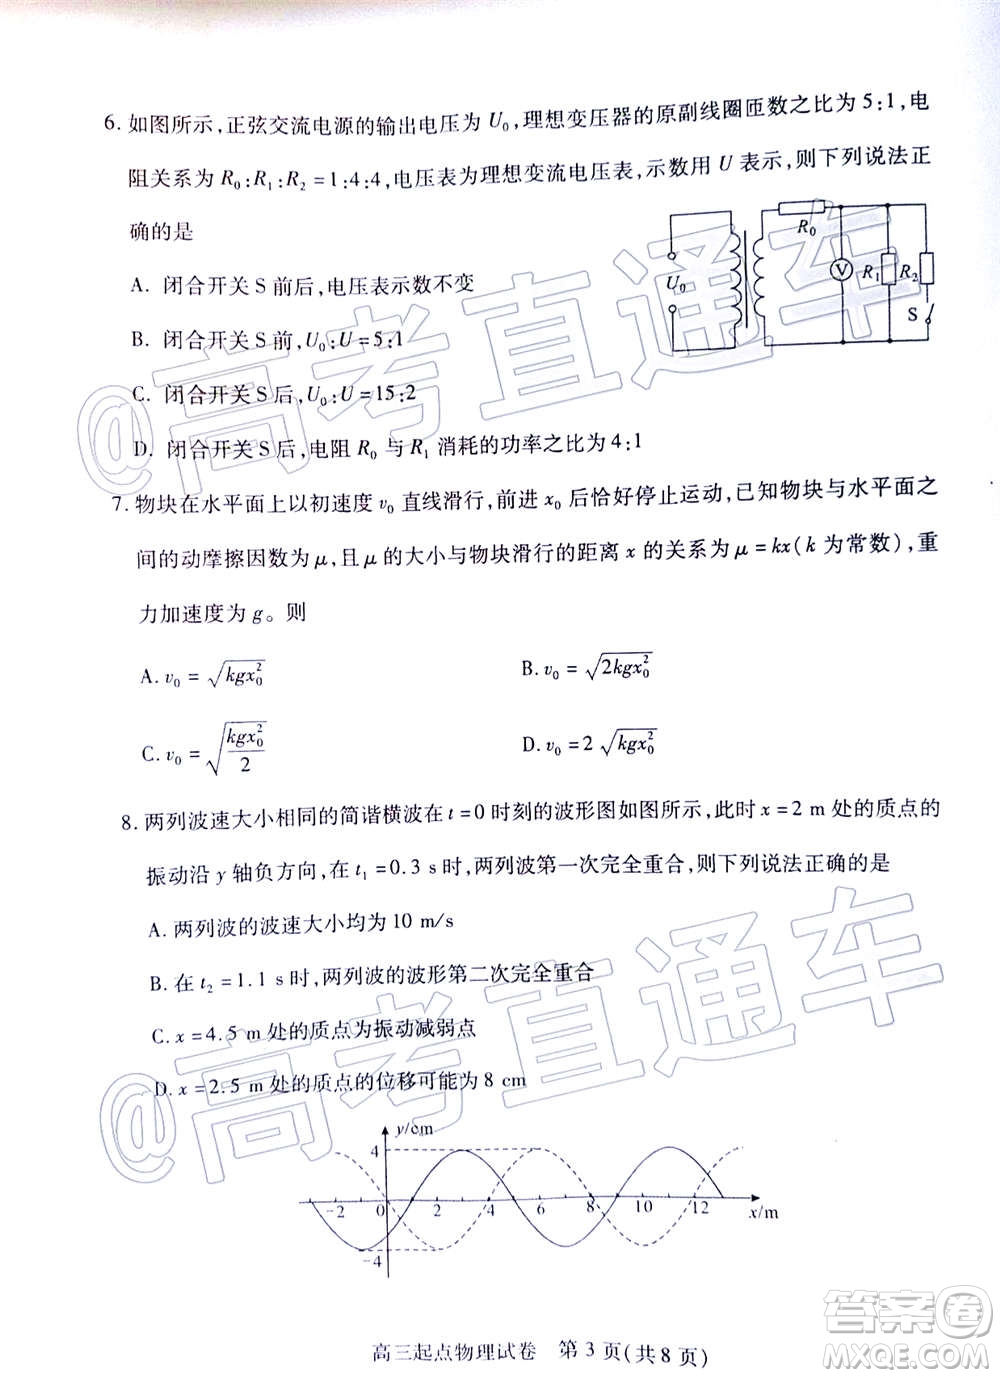 6. 如图所示,正弦交流电源的输出电压为 U₀,理想变压器的原副线圈匝数之比为 5:1,电
阻关系为 R₀:R₁:R₂=1:4:4,电压表为理想变流电压表,示数用 U 表示,则下列说法正
确的是
A. 闭合开关 S 前后,电压表示数不变
B. 闭合开关 S 前,U₀:U=5:1
C. 闭合开关 S 后,U₀:U=15:2
D. 闭合开关 S 后,电阻 R₀ 与 R₁ 消耗的功率之比为 4:1
U₀ R₀ V R₁ R₂ S
7. 物块在水平面上以初速度 v₀ 直线滑行,前进 x₀ 后恰好停止运动,已知物块与水平面之
间的动摩擦因数为 μ,且 μ 的大小与物块滑行的距离 x 的关系为 μ=kx(k 为常数),重
力加速度为 g。则
A. v₀ = √(kgx₀²) B. v₀ = √(2kgx₀²)
C. v₀ = √(kgx₀²/2) D. v₀ = 2√(kgx₀²)
8. 两列波速大小相同的简谐横波在 t=0 时刻的波形图如图所示,此时 x=2 m 处的质点的
振动沿 y 轴负方向,在 t₁=0.3 s 时,两列波第一次完全重合,则下列说法正确的是
A. 两列波的波速大小均为 10 m/s
B. 在 t₂=1.1 s 时,两列波的波形第二次完全重合
C. x=4.5 m 处的质点为振动减弱点
D. x=2.5 m 处的质点的位移可能为 8 cm
y/cm
4
-2 0 2 4 6 8 10 12 x/m
-4
高三起点物理试卷 第 3 页(共 8 页)
@高考直通车
@高考直通车
答案卷
MXQE.COM